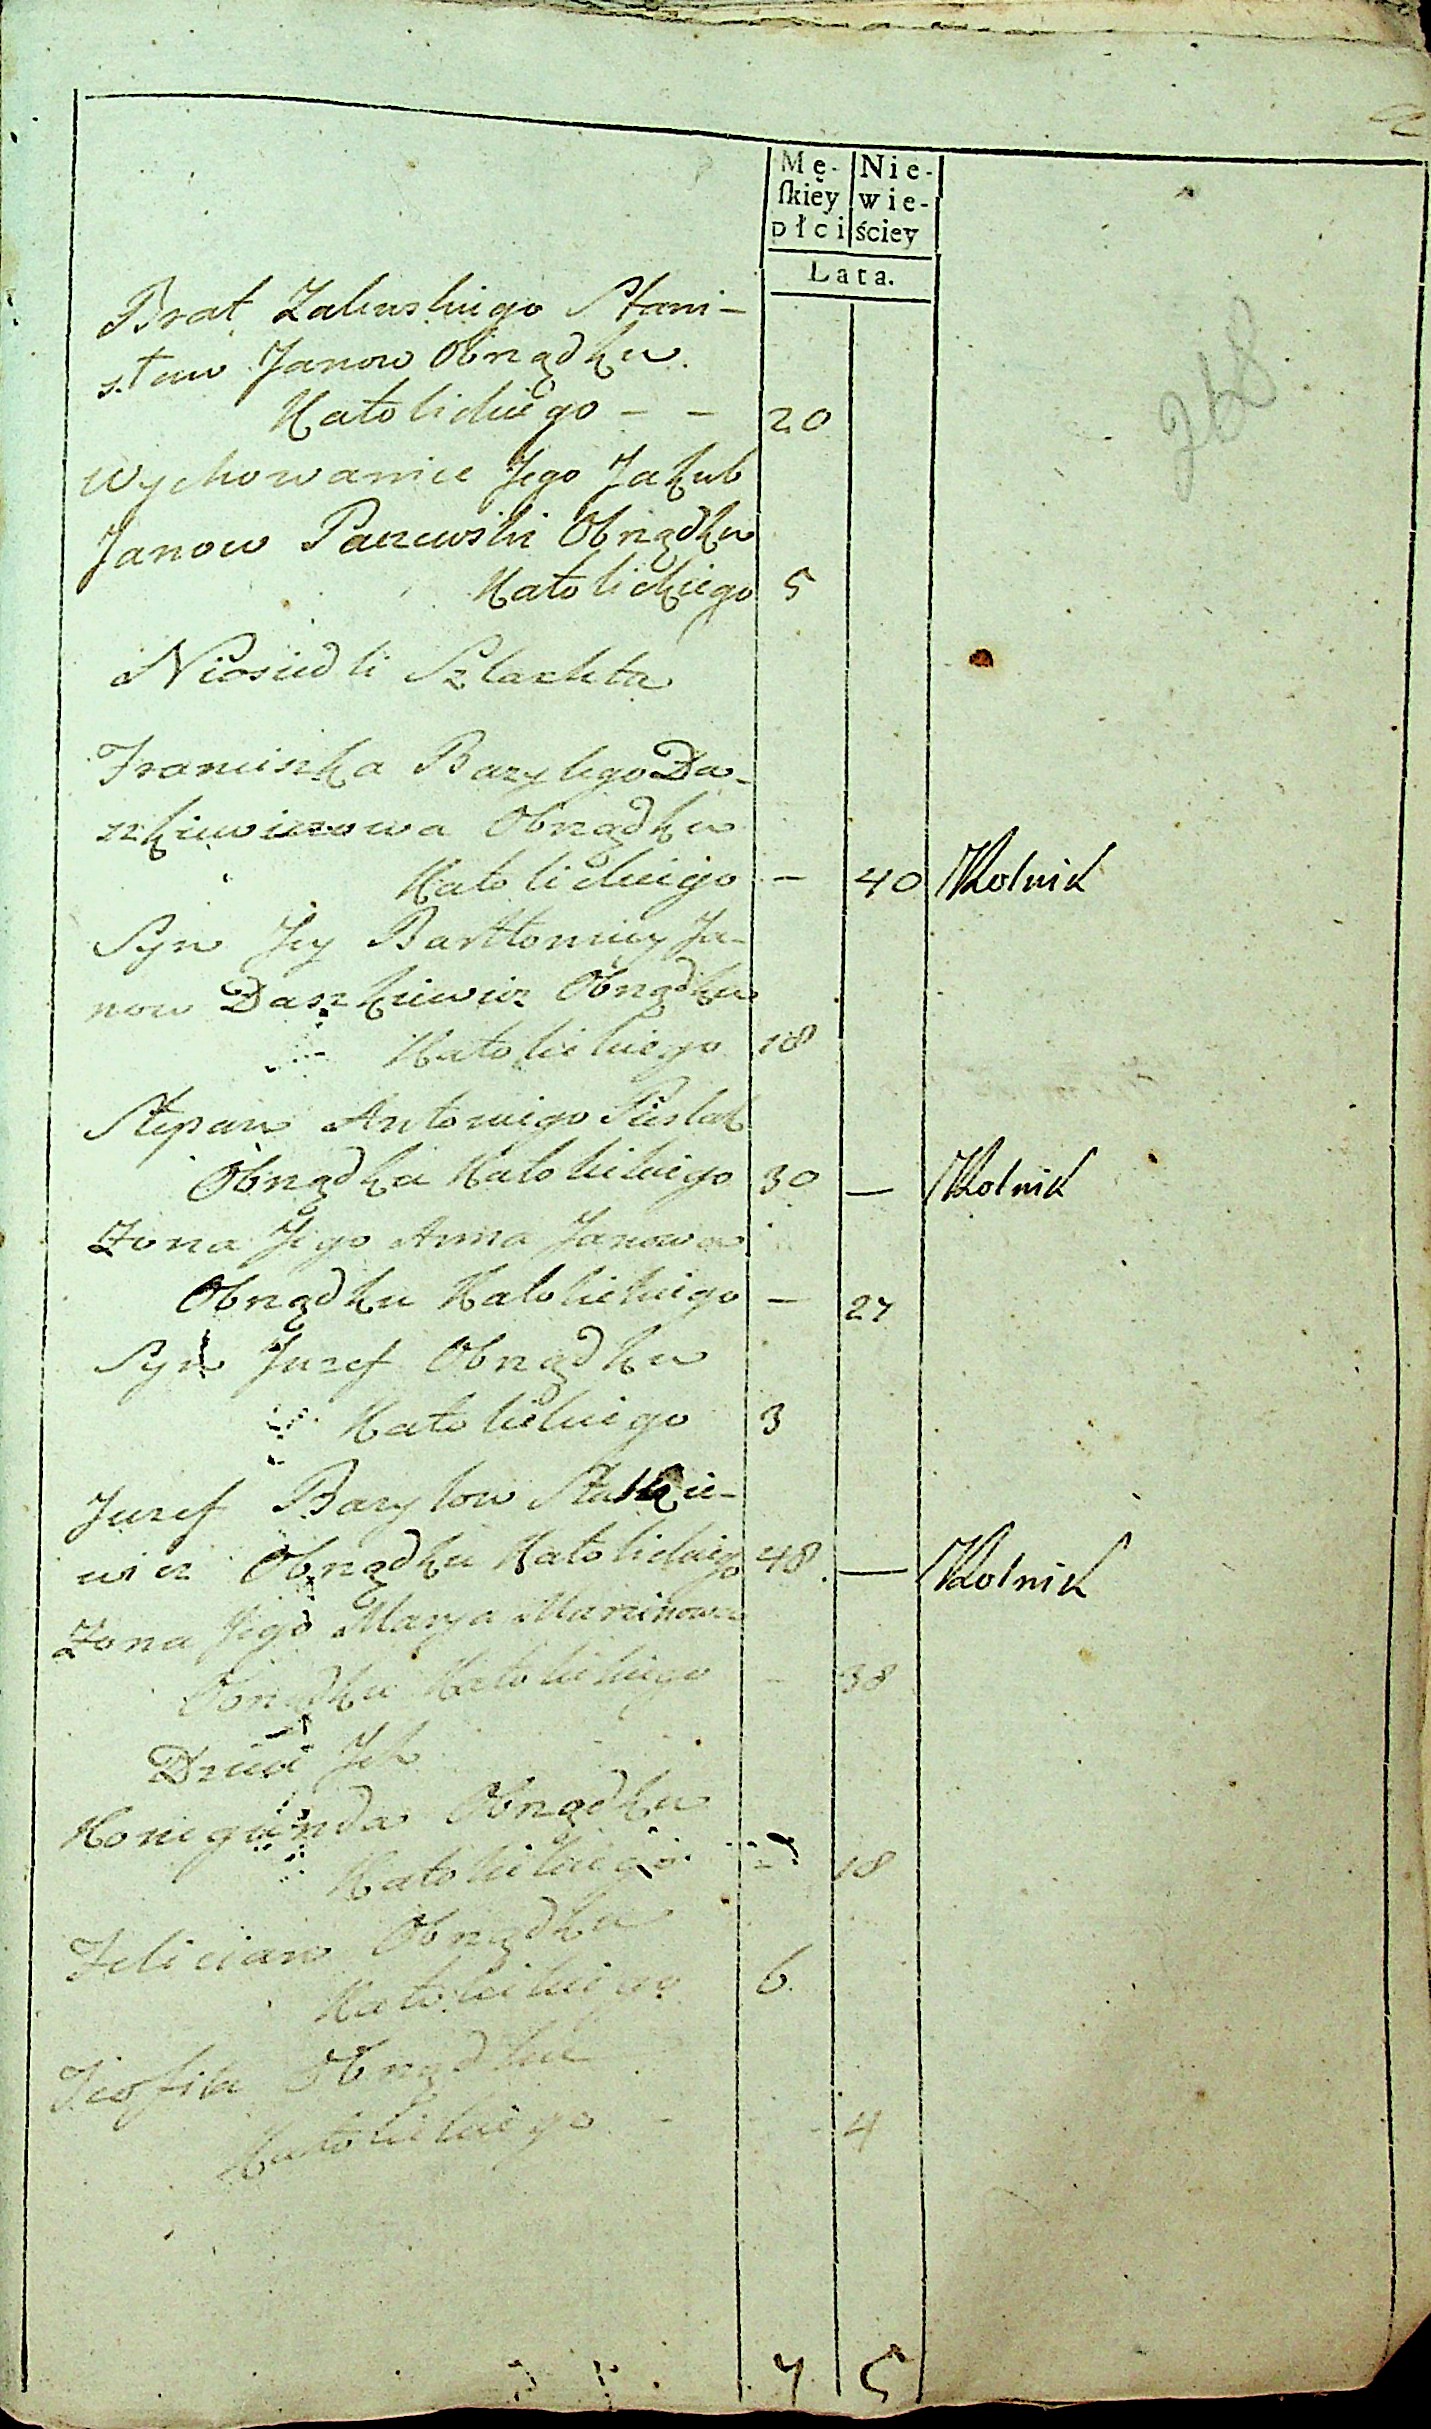 Mę- Nie-
ſkiey wie-
płci ściey
Lata.
Brat Zaleuskiego Stani-
sław Janow Obrządku
Katolickiego - - 20
Wychowanice Jego Jakub
Janow Obrządku
Katolickiego 5
Nieosiedli Szlachta
Franciszka Bazylego Da-
szkiewiczowa Obrządku
Katolickiego - 40 Rolnik
Syn Jey Bartłomiey Ja-
now Daszkiewicz Obrządku
Katolickiego 18
Stepan Antoniego
Obrządku Katolickiego 30 — Rolnik
Żona Jego Anna Janowa
Obrządku Katolickiego - 27
Syn Juzef Obrządku
Katolickiego 3
Juzef Bazylow
wicz Obrządku Katolickiego 48. — Rolnik
Żona Jego Marya Marcinowa
Obrządku Katolickiego - 38
Dzieci Ich
Konegunda Obrządku
Katolickiego - 18
Felician Obrządku
Katolickiego 6.
Teofila Obrządku
Katolickiego - - 4
7 5